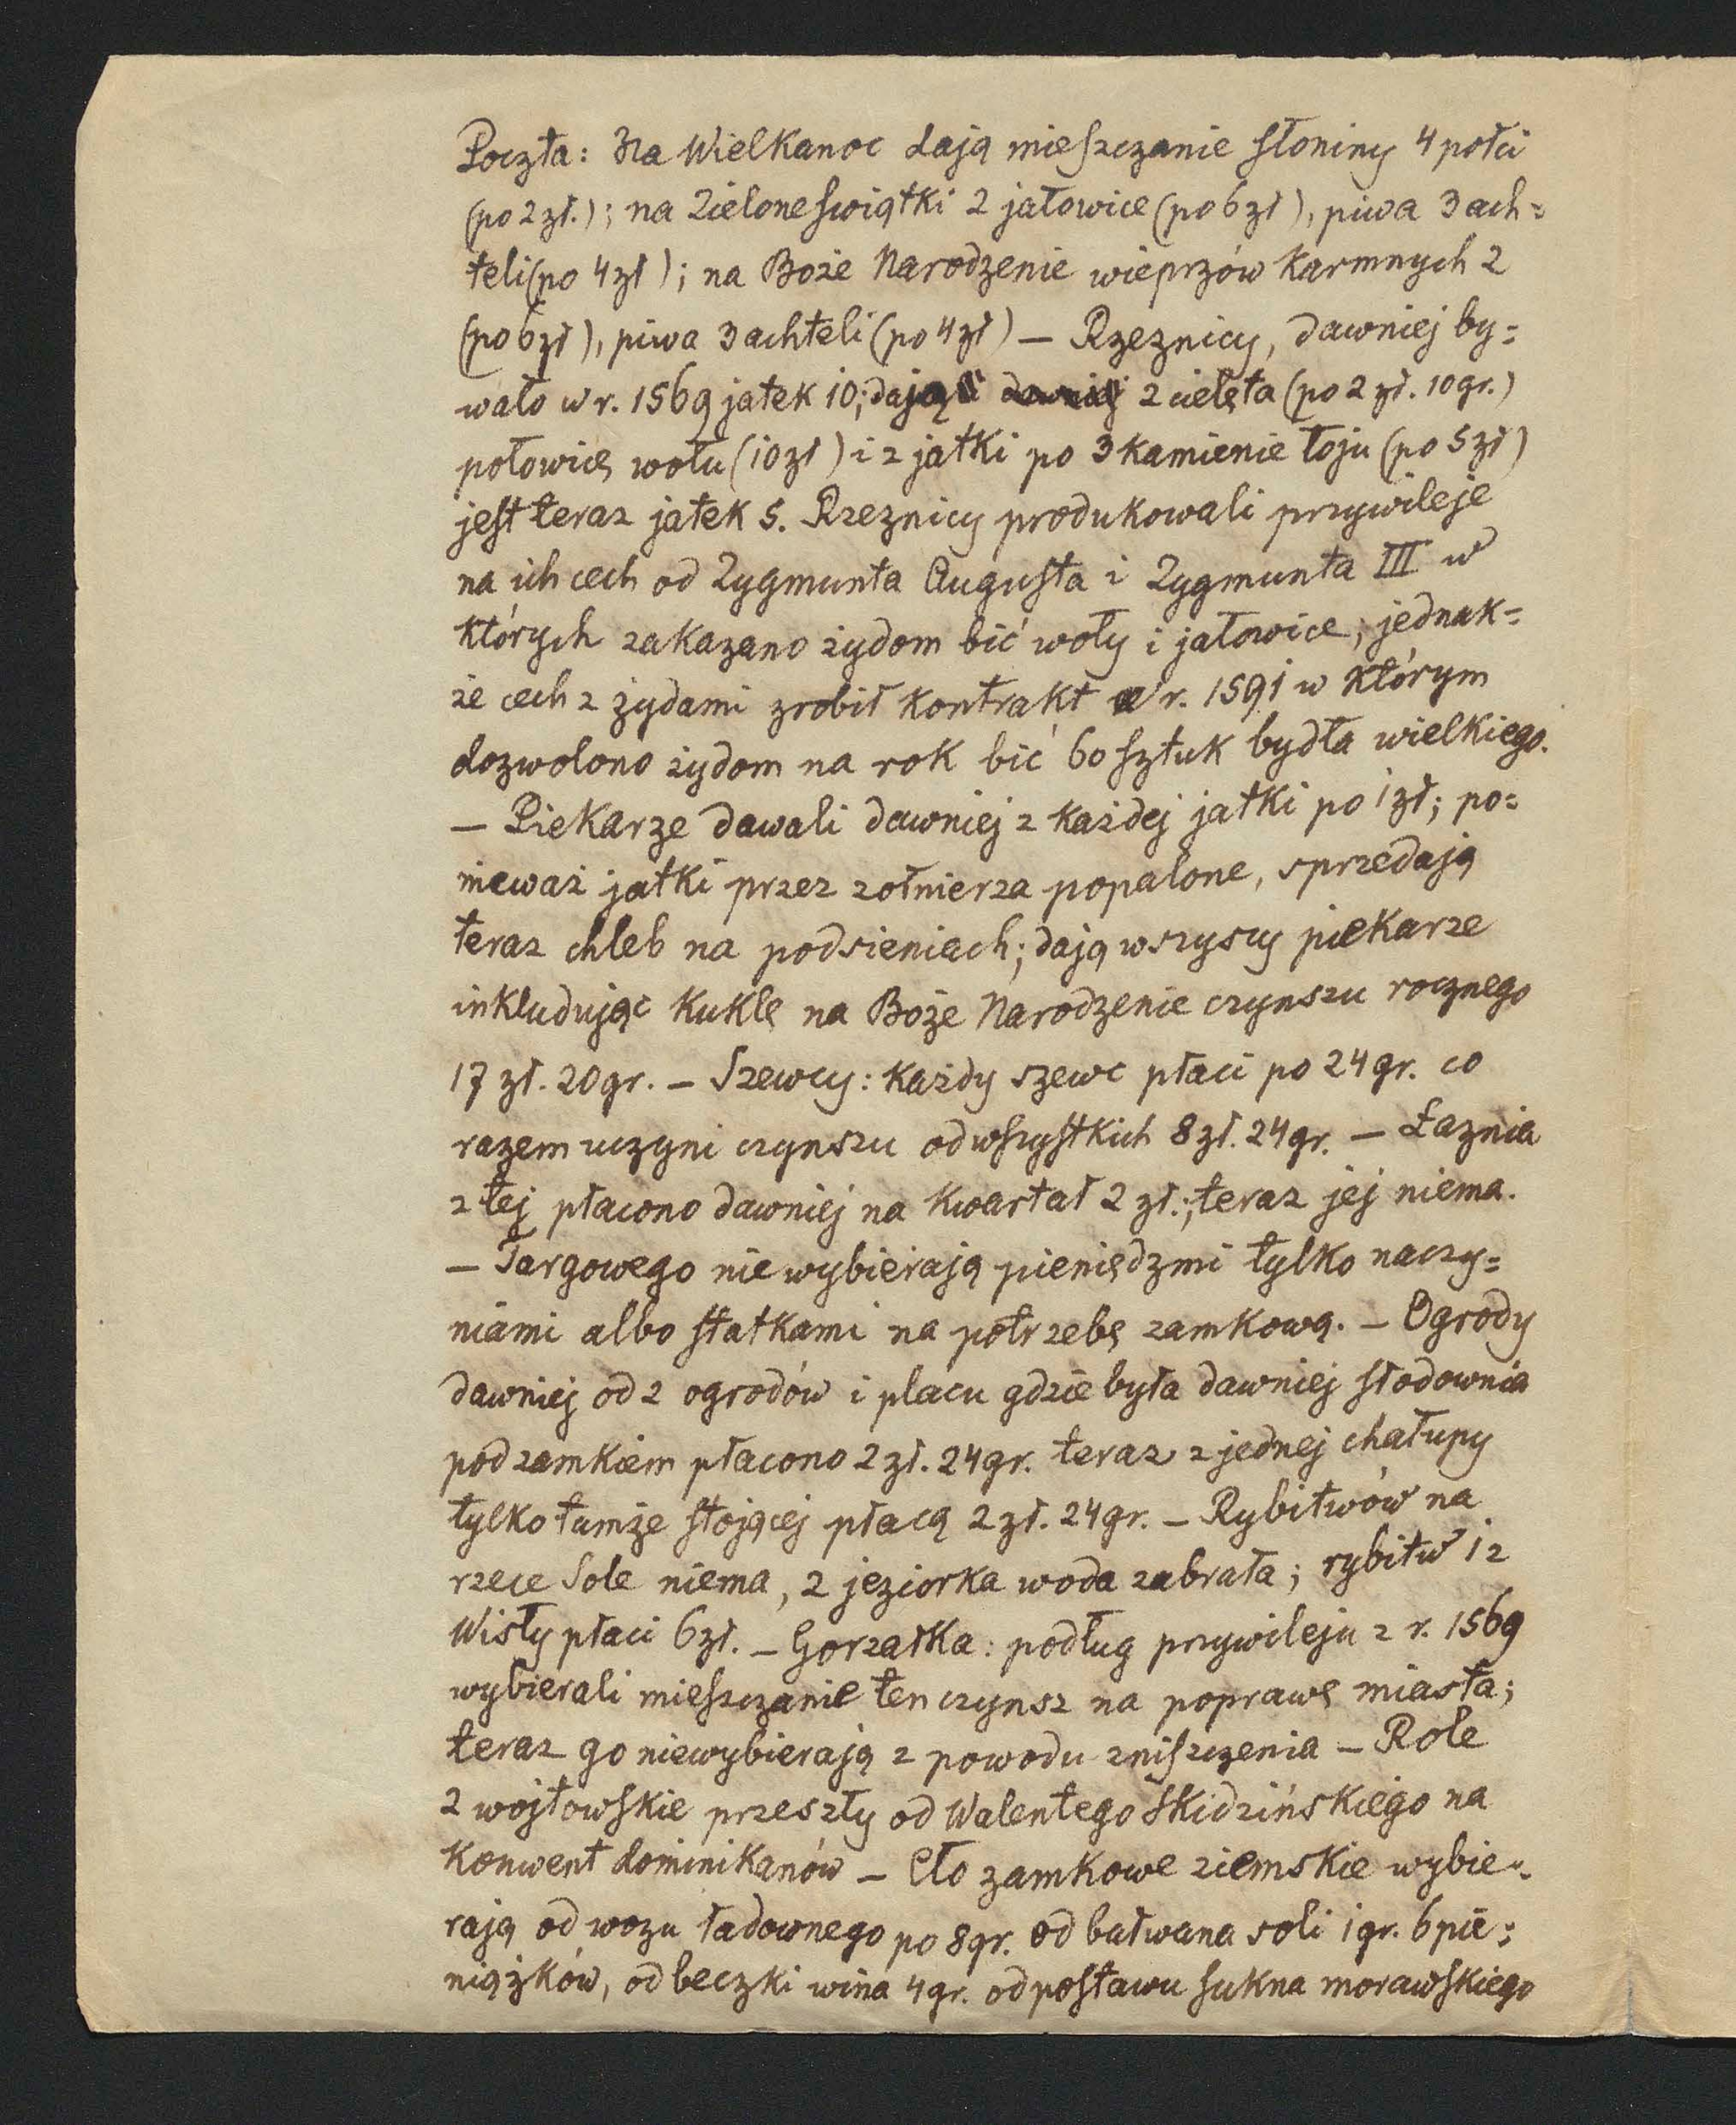 Poczta: Na Wielkanoc dają mieszczanie słoniny 4 połci
(po 2 zł.); na Zielone świątki 2 jałowice (po 6 zł), piwa 3 ach=
teli (po 4 zł); na Boże Narodzenie wieprzów karmnych 2
(po 6 zł), piwa 3 achteli (po 4 zł) — Rzeznicy, dawniej by=
wało w r. 1569 jatek 10; dają 2 cielęta (po 2 zł. 10 gr.)
połowicę wołu (10 zł) i z jatki po 3 kamienie łoju (po 5 zł)
jest teraz jatek 5. Rzeznicy produkowali przywileje
na ich cech od Zygmunta Augusta i Zygmunta III w
których zakazano żydom bić woły i jałowice; jednak=
że cech z żydami zrobił kontrakt w r. 1591 w którym
dozwolono żydom na rok bić 60 sztuk bydła wielkiego.
— Piekarze dawali dawniej z każdej jatki po 1 zł; po=
nieważ jatki przez zołnierza popalone, sprzedają
teraz chleb na podsieniach; dają wszyscy piekarze
inkludując kuklę na Boże Narodzenie czynszu rocznego
17 zł. 20 gr. — Szewcy: każdy szewc płaci po 24 gr. co
razem uczyni czynszu od wszystkich 8 zł. 24 gr. — Łaznia
z tej płacono dawniej na kwartał 2 zł.; teraz jej niema.
— Targowego nie wybierają pieniędzmi tylko naczy=
niami albo statkami na potrzebę zamkową. — Ogrody
dawniej od 2 ogrodów i placu gdzie była dawniej słodownia
pod zamkiem płacono 2 zł. 24 gr. teraz z jednej chałupy
tylko tamże stojącej płacą 2 zł. 24 gr. — Rybitwów na
rzece Sole niema, z jeziorka woda zabrała; rybitw 1 z
Wisły płaci 6 zł. — Gorzałka: podług przywileju z r. 1569
wybierali mieszczanie ten czynsz na poprawę miasta;
teraz go niewybierają z powodu zniszczenia — Role
2 wojtowskie przeszły od Walentego Skidzińskiego na
konwent dominikanów — Cło zamkowe ziemskie wybie=
rają od wozu ładownego po 8 gr. od bałwana soli 1 gr. 6 pie=
niążków, od beczki wina 4 gr. od postawu sukna morawskiego